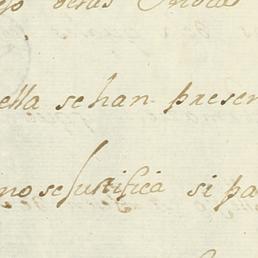 ella se han presen
no se Justifica si pa